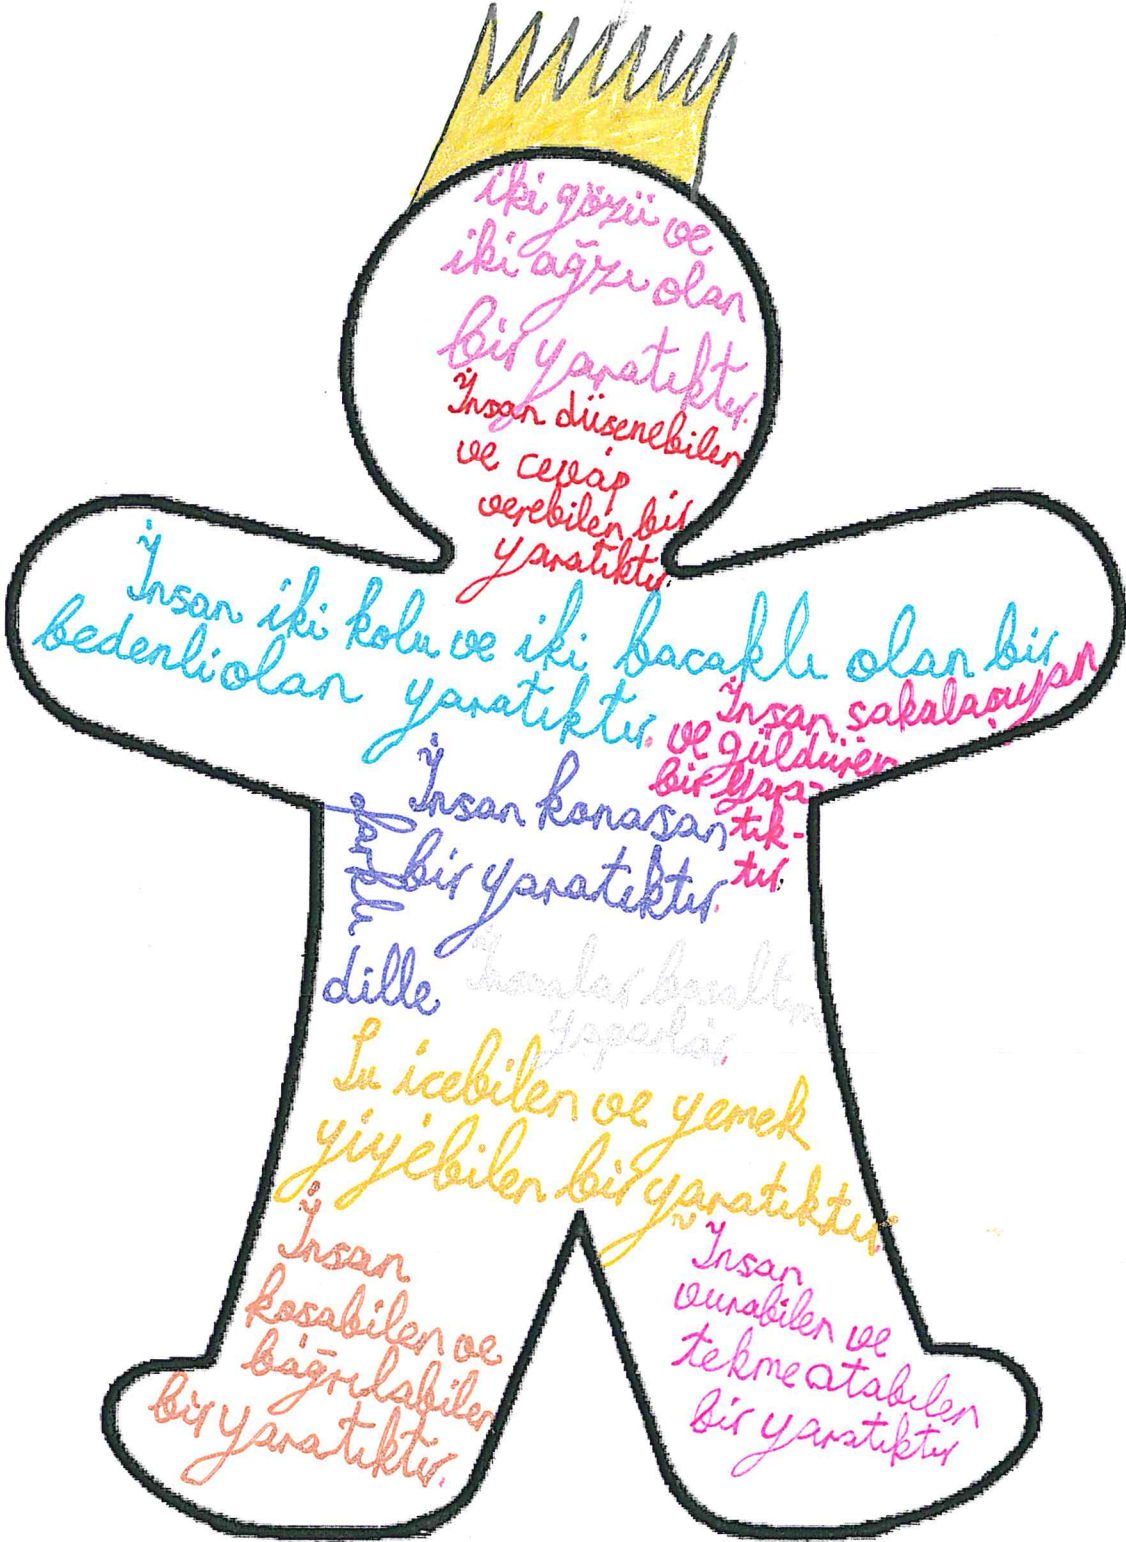 iki gözü ve
iki ağzı olan
bir yaratıktır.
İnsan düsenebilen
ve cevap
verebilen bir
yaratıktır.
İnsan iki kolu ve iki bacaklı olan bir
bedenli olan yaratıktır.
İnsan sakalaşıyan
ve güldüren
bir yara-
tık-
tır.
İnsan konarşan
bir yaratıktır.
farklı
dille
İnsanlar
yaparlar.
Su icebilen ve yemek
yiyebilen bir yaratıktır.
İnsan
kosabilen ve
bağrılabilen
bir yaratıktır.
İnsan
vurabilen ve
tekme atabilen
bir yaratıktır